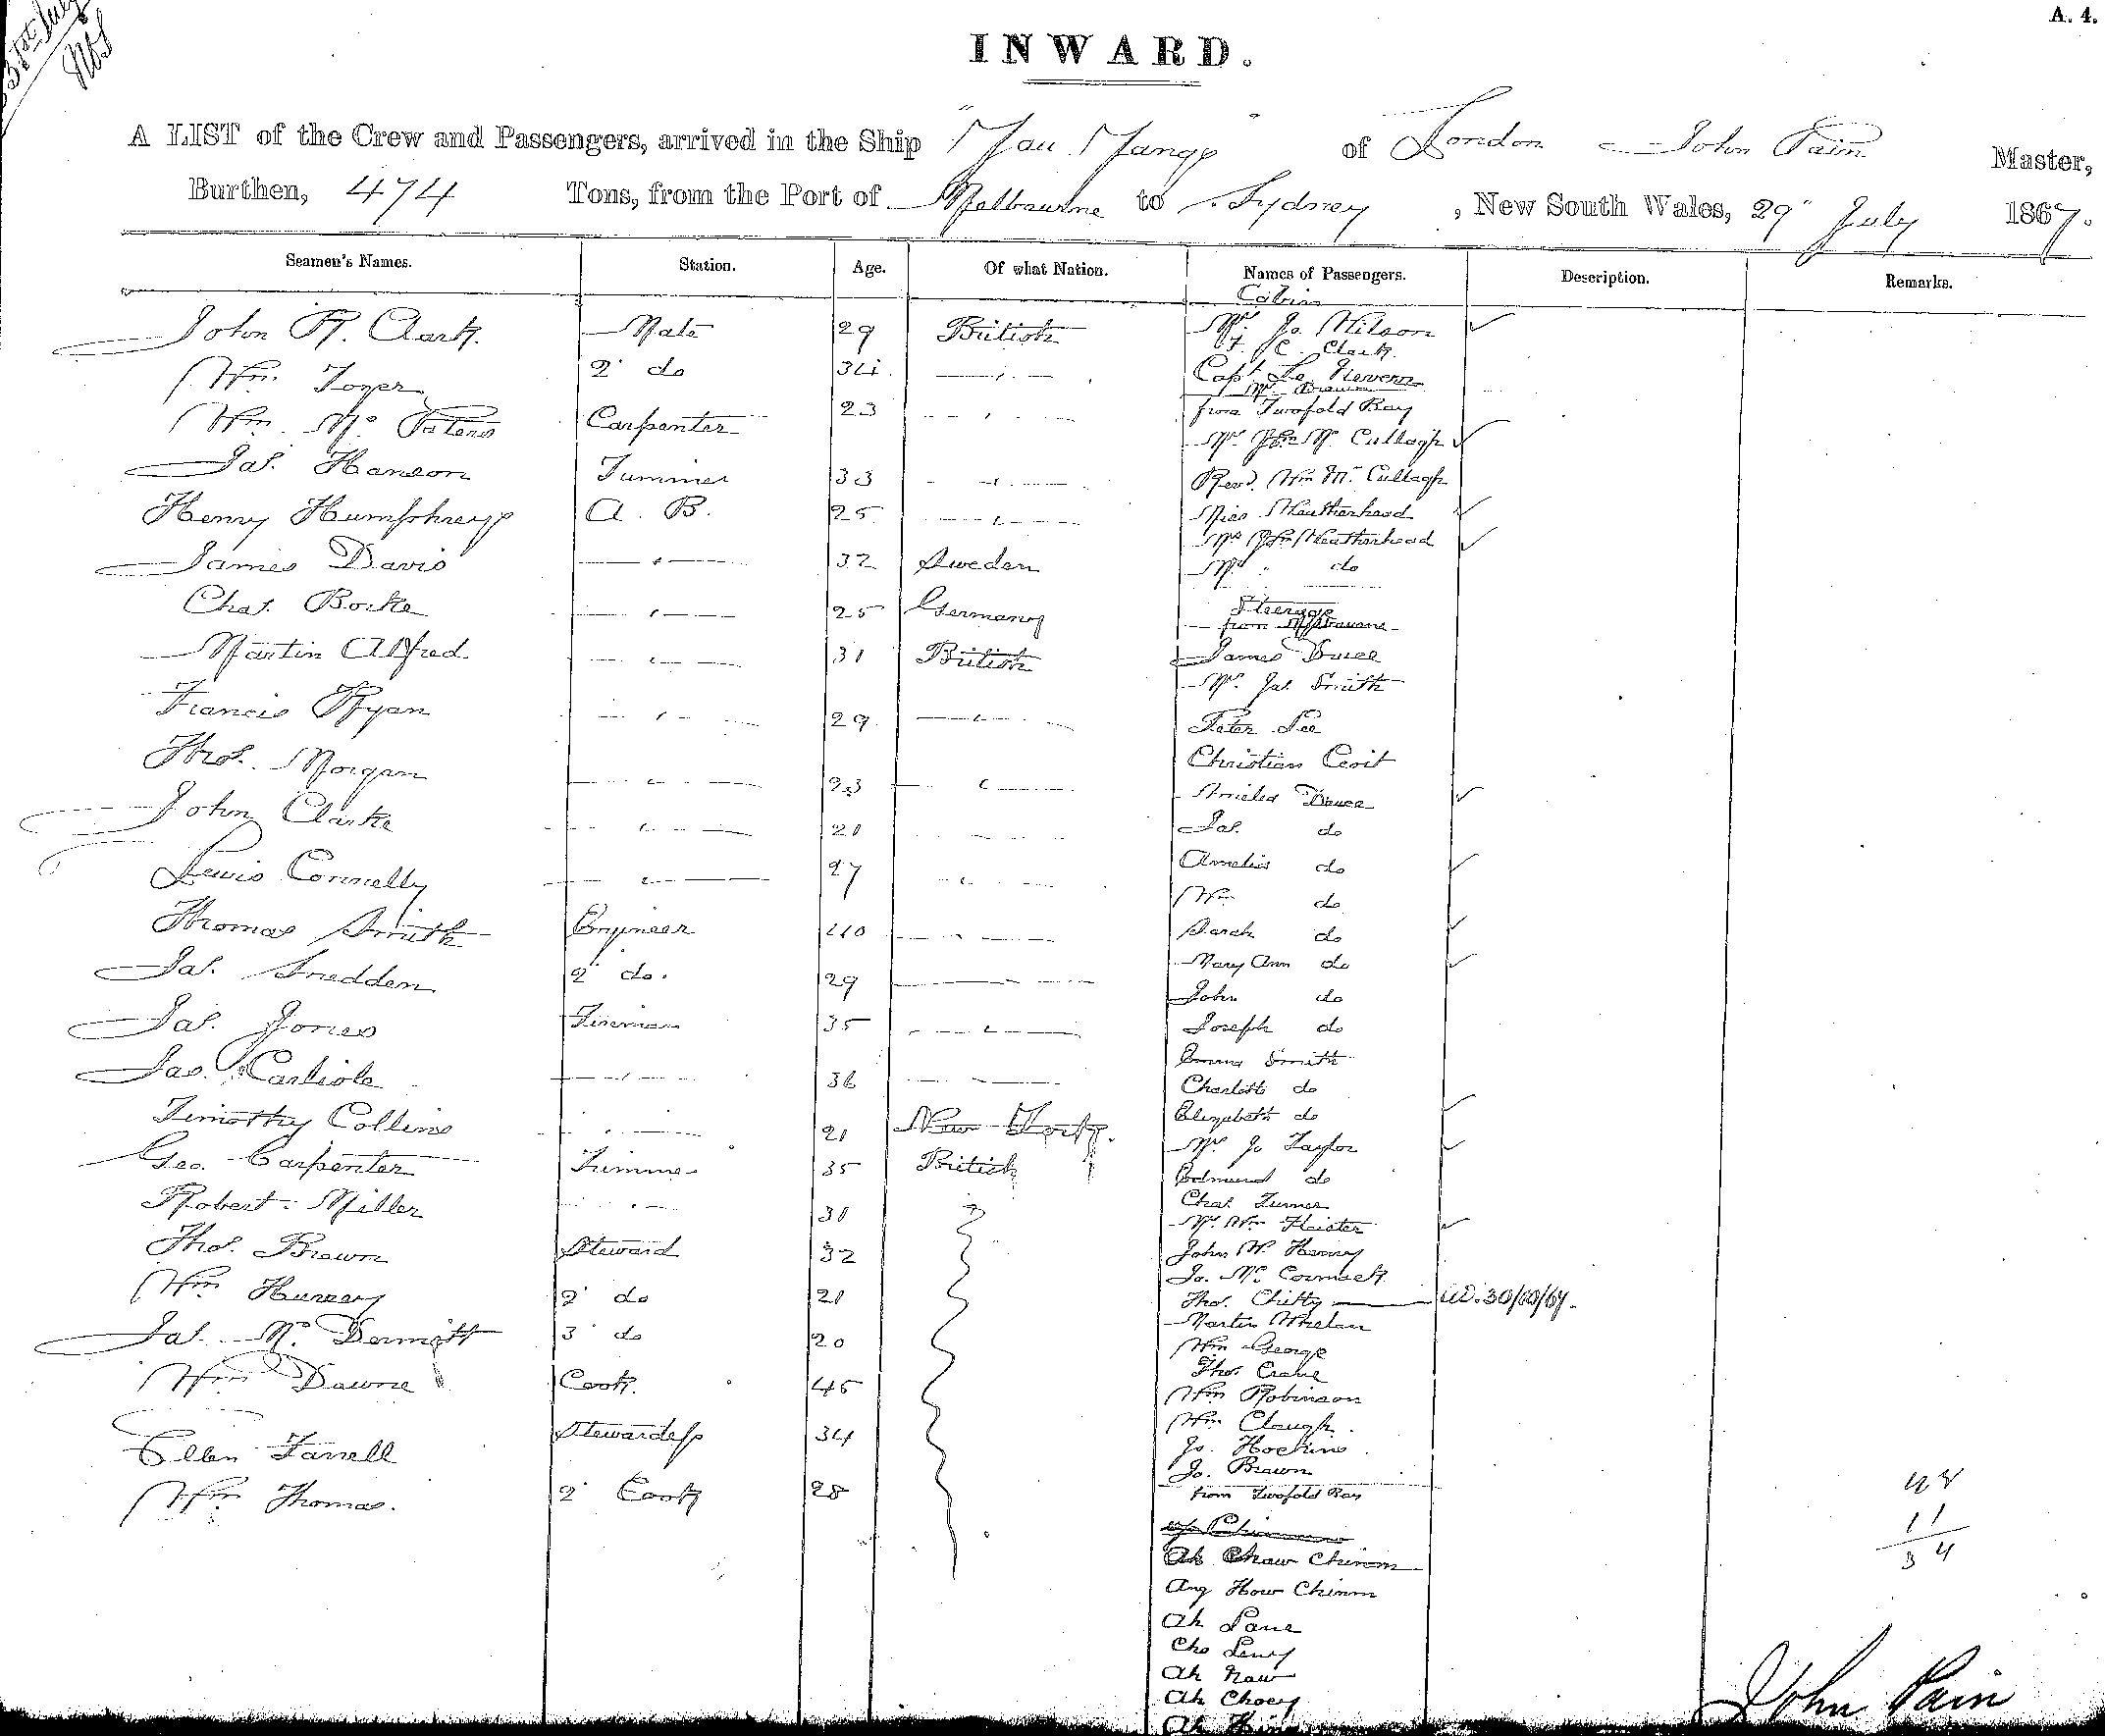 31st July
A. 4.
INWARD.
A LIST of the Crew and Passengers, arrived in the Ship "You Yangs" of London John Pain Master,
Burthen, 474 Tons, from the Port of Melbourne to Sydney, New South Wales, 29" July 1867.
Seamen's Names. Station. Age. Of what Nation. Names of Passengers. Description. Remarks.
Cabin
John R. Clark. Mate 29 British Mr. Jo. Wilson
F. C. Clark.
Wm. Toger 2 do 34 Capt
from Twofold Bay
Wm. Mc Carpenter 23 Mr. Mc Cullagh
Jas. Hanson Trimmer 33 Revd. Wm Mc Cullagh
Henry Humphreys A. B. 25 Miss Weatherhead
James Davis 32 Sweden Mrs Weatherhead
Mr do
Chas. Bocke 25 Germany Steerage
from Melbourne
Martin Alfred 31 British James Duce
Mr. Jas. Smith
Francis Ryan 29 Peter Lee
Thos. Morgan 23 Christian
Duce
John Clarke 21 Jas. do
Lewis Connelly 27 Amelia do
Wm do
Thomas Smith Engineer 40 Sarah do
Jas. Snedden 2 do. 29 Mary Ann do
John do
Jas. Jones Fireman 35 Joseph do
Emma Smith
Jas. Carlisle 36 Charlotte do
Timothy Collins 21 New York. Elizabeth do
Mrs Jo Taylor
Geo. Carpenter Trimmer 35 British Edmund do
Robert Miller 30 Chas. Turner
Mr. Wm
Thos. Brown Steward 32 John W. Harvey
Jo. Mc Cormack
Wm 2 do 21 Thos. Chitty 30/10/67.
Martin Whelan
Jas. Mc Dermott 3 do 20 Wm George
Thos. Crane
Wm Dawne Cook. 45 Wm Robinson
Wm Clough.
Ellen Farrell Stewardess 34 Jo. Hockins
Jo. Brown
Wm Thomas. 2 Cook 28 from Twofold Bay
11
34
Ah Chaw Chinm
Ang How Chinm
Ah Lane
Cho
Ah Naw
Ah Choey
Ah
John Pain